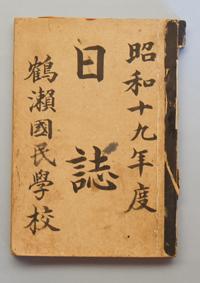 昭和十九年度
日誌
鶴瀬國民學校